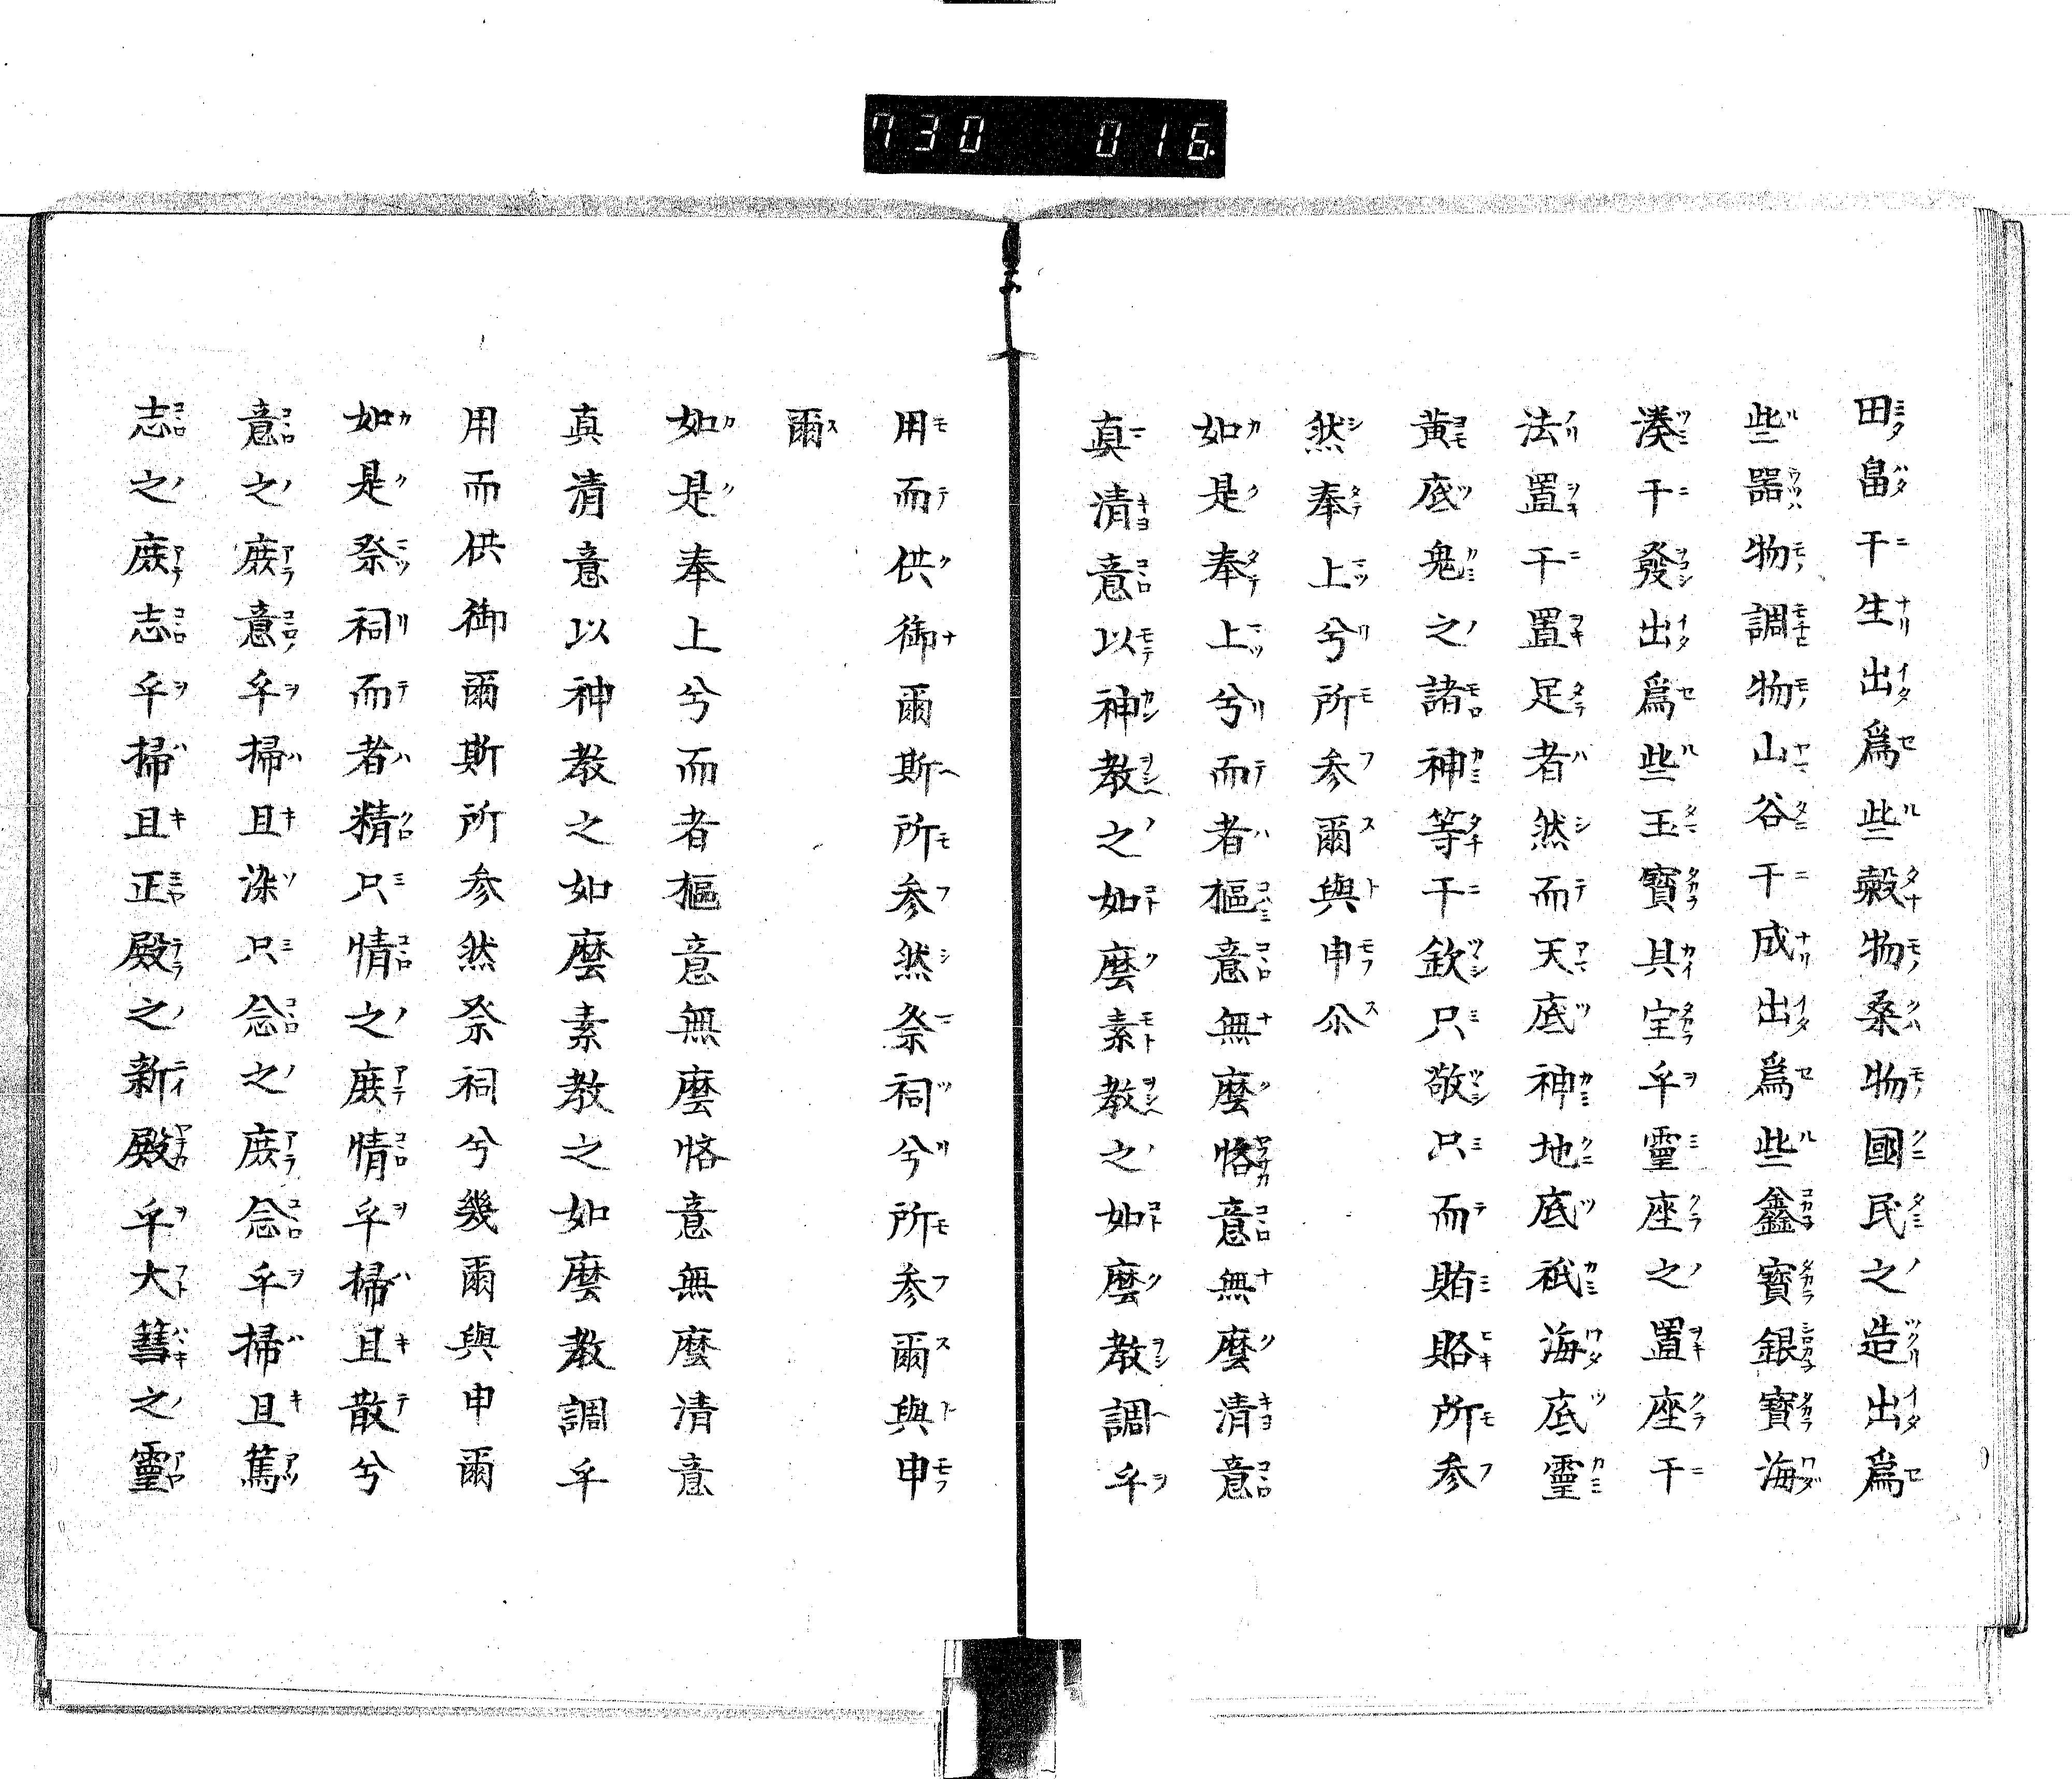 730 016
田畠干生出爲些穀物桑物國民之造出爲
些器物調物山谷干成出爲些鑫寳銀寳海
湊干發出爲些玉寳具宝乎靈座之置座干
法置干置足者然而天底神地底祇海底靈
黄底鬼之諸神等干欽只敬只而賄賂所参
然奉上兮所参爾與申尒
如是奉上兮而者樞意無麼悋意無麼清意
真清意以神教之如麼素教之如麼教調乎
用而供御爾斯所参然祭祠兮所参爾與申
爾
如是奉上兮而者樞意無麼悋意無麼清意
真清意以神教之如麼素教之如麼教調乎
用而供御爾斯所参然祭祠兮幾爾與申爾
如是祭祠而者精只情之蔟情乎掃且散兮
意之蔟意乎掃且染只念之蔟念乎掃且篤
志之蔟志乎掃且正殿之新殿乎大篲之靈